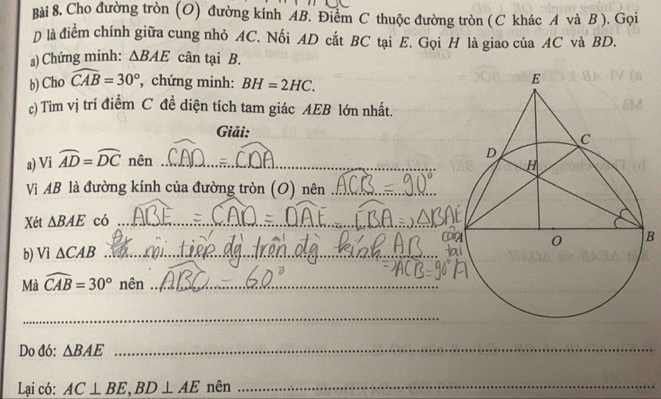 Bài 8. Cho đường tròn (O) đường kính AB. Điểm C thuộc đường tròn (C khác A và B). Gọi
D là điểm chính giữa cung nhỏ AC. Nối AD cắt BC tại E. Gọi H là giao của AC và BD.
a) Chứng minh: ΔBAE cân tại B.
b) Cho CAB = 30°, chứng minh: BH = 2HC.
c) Tìm vị trí điểm C để diện tích tam giác AEB lớn nhất.
Giải:
a) Vì AD = DC nên CAD = CDA
Vì AB là đường kính của đường tròn (O) nên ACB = 90°
Xét ΔBAE có ABE = CAD = DAE = EBA => ΔBAE
cân
tại
A
b) Vì ΔCAB nội tiếp đg tròn đg kính AB
=> ACB = 90°
Mà CAB = 30° nên ABC = 60°
Do đó: ΔBAE
Lại có: AC ⊥ BE, BD ⊥ AE nên
E
C
D
H
A
O
B